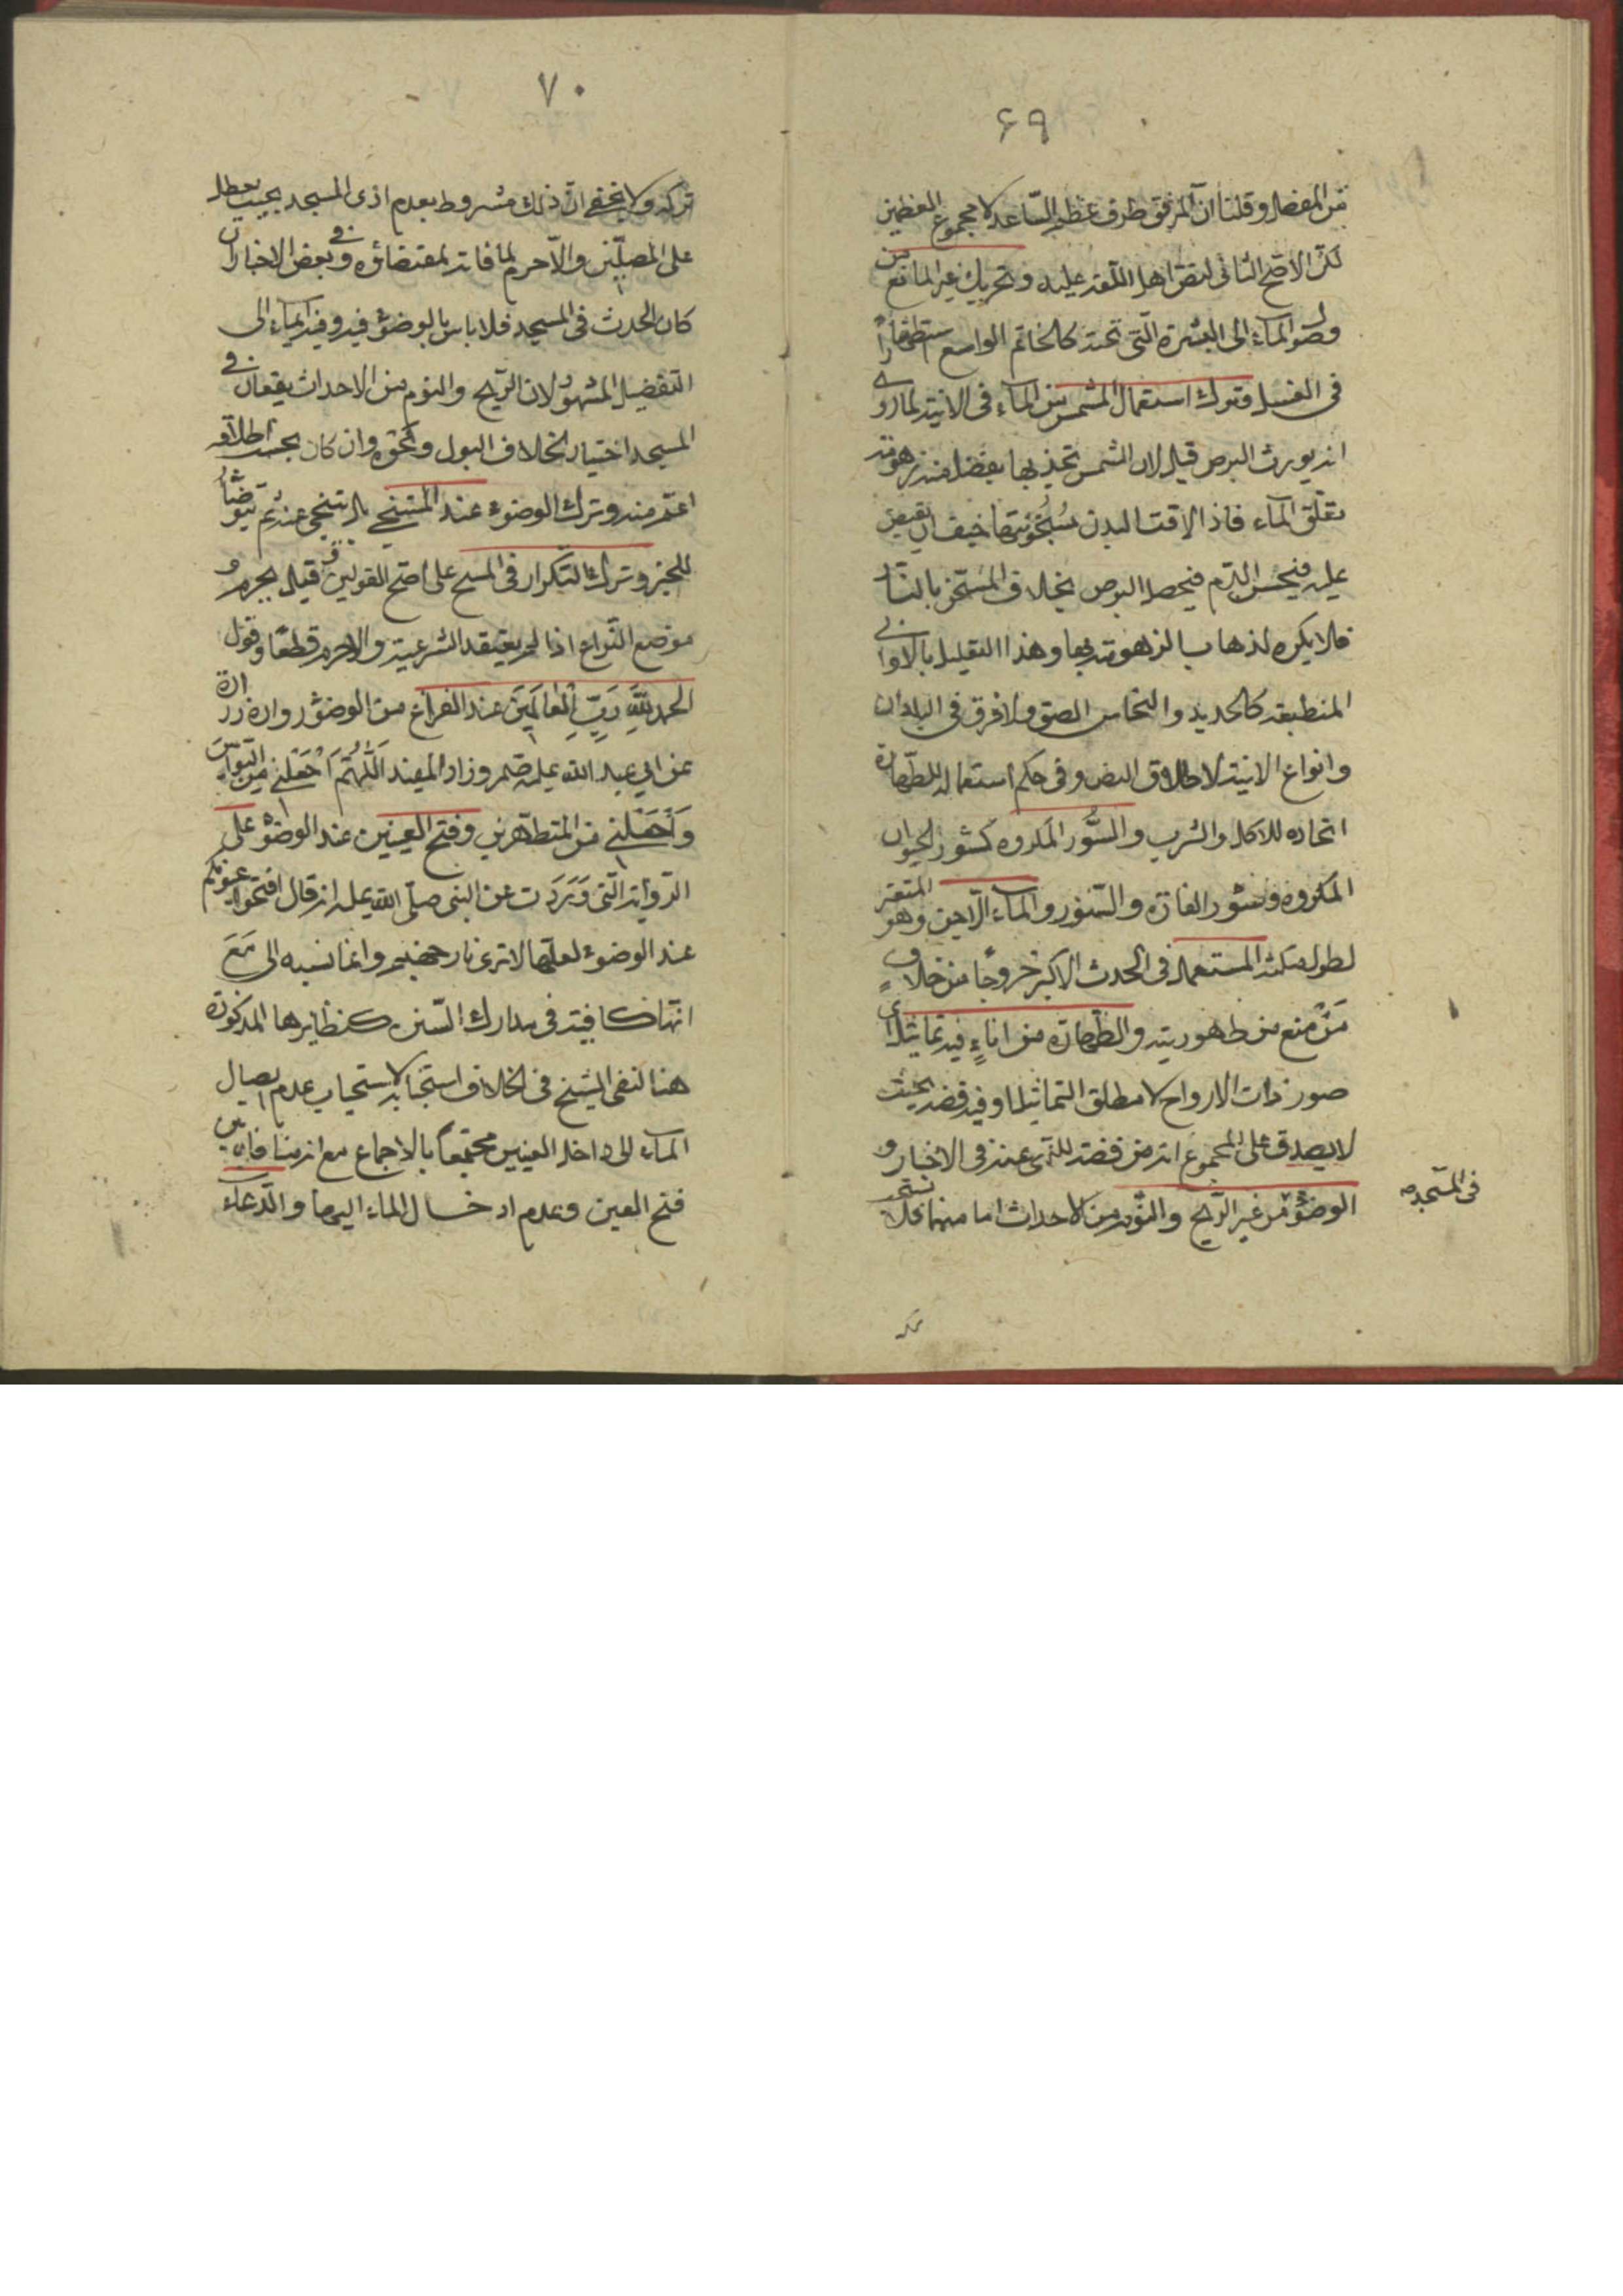 ۶۹
من المفصل وقلنا ان المرفق طرف عظم الساعد لا مجموع العظمين
لكن الاصح الثانى لنص اهل اللغة عليه وتحريك غير المانع من
وصول الماء الى البشرة التى تحته كالخاتم الواسع استظهارًا
فى الغسل وترك استعمال المشمس من الماء فى الانية لما روى
انه يورث البرص قيل لان الشمس تجذب بها بفضل منه زهومة
تعلق الماء فاذا لاقت البدن بسخونتها خيف ان يقبض
عليه فيحبس الدم فيحصل البرص بخلاف المسخن بالنار
فلا يكره لذهاب الزهومة بها وهذا التعليل بالاوانى
المنطبعة كالحديد والنحاس الصق ولا فرق فى البلدان
وانواع الانية لاطلاق النص وفى حكم استعماله للطهارة
اتخاذه للاكل والشرب والسُّور المكروه كسُور الحيوان
المكروه وسُور الفارة والسنور والماء الاجن وهو المتغير
لطول مكثه المستعمل فى الحدث الاكبر خروجًا من خلاف
مَنْ منع من طهوريته والطهارة من اناءٍ فيه تماثيل اى
صور ذات الارواح لا مطلق التماثيل او فيه فضة بحيث
لا يصدق على المجموع انه من فضة للنهى عنه فى الاخبار و
الوضوء من غير الريح والنوم من الاحداث اما منهما فلا يستحب
فى المسجد صح
تركه
۷۰
تركه ولا يخفى ان ذلك مشروط بعدم اذى المسجد بحيث يعطل
على المصلّين والّا حرم لمنافاته لمقتضاؤه وفى بعض الاخبار ان
كان الحدث فى المسجد فلا باس بالوضوء فيه وفيه ايماء الى
التفضيل المشهور لان الريح والنوم من الاحداث يقعان فى
المسجد اختيار بخلاف البول ونحوه وان كان بحسب اطلاقه
اعمّ منه وترك الوضوء عند المستنجى بان يستنجى عنده ثم يتوضأ
للخبر وترك التكرار فى المسح على اصح القولين وقيل يحرم و
موضع النزاع اذا لم يعتقد الشرعية والا حرم قطعًا وقول
الحمد للهِ رَبِّ الْعالَمِينَ عند الفراغ من الوضوء رواه زرارة
عن ابى عبد الله عليه السلم وزاد المفيد اَللّهُمَّ اجْعَلْنِى مِنَ التوابين
وَاجْعَلْنِى من المتطهرين وفتح العينين عند الوضوء على
الرواية التى وَرَدَت عن النبى صلّى الله عليه انه قال افتحوا عيونكم
عند الوضوء لعلّها لا ترى نار جهنم وانما نسبه الى مَعَ
انّها كافية فى مدارك السّنن كنظايرها المذكورة
هنا لنفى الشيخ فى الخلاف استحبابه لاستحباب عدم ايصال
الماء الى داخل العينين محتجًا بالاجماع مع انه منا فاة بين
فتح العين وعدم ادخال الماء اليها والدّعاء